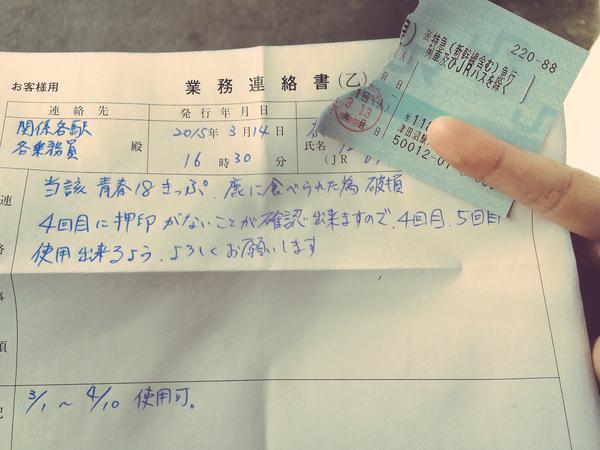 お客様用
業務連絡書(乙)
連絡先
発行年月日
関係各駅
各乗務員 殿
2015年3月14日
16時30分
氏名
(JR
連
当該 青春18きっぷ、鹿に食べられた為 破損
4回目に押印がないことが確認出来ますので、4回目、5回目
使用出来るよう、よろしくお願いします
項
3/1 ~ 4/10 使用可。
220-88
※特急(新幹線含む)急行
列車及びJRバスを除く
3.13
¥118
津田沼駅
50012-01